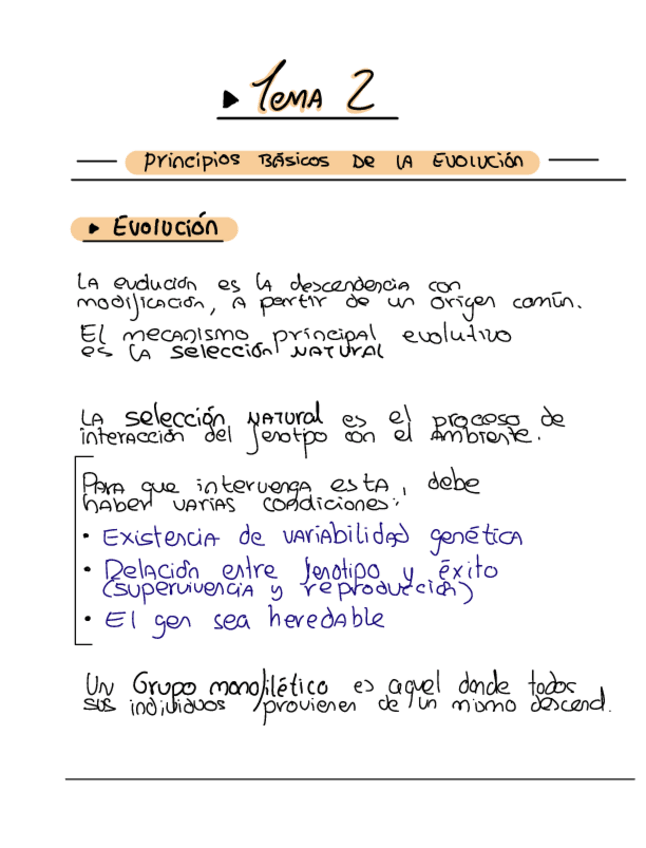 ▸ Tema 2
Principios Básicos de la Evolución
▸ Evolución
La evolución es la descendencia con
modificación, a partir de un origen común.
El mecanismo principal evolutivo
es la selección natural
La selección natural es el proceso de
interacción del fenotipo con el ambiente.
Para que intervenga esta, debe
haber varias condiciones:
• Existencia de variabilidad genética
• Relación entre fenotipo y éxito
(supervivencia y reproducción)
• El gen sea heredable
Un Grupo monofilético es aquel donde todos
sus individuos provienen de un mismo descend.